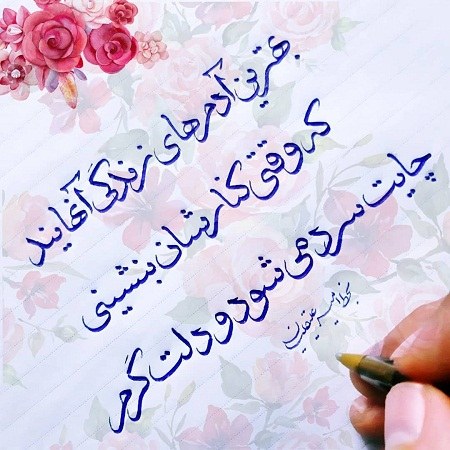 بهترین آدم‌های زندگی آنهایند
که وقتی کنارشان بنشینی
چایت سرد می شود و دلت گرم
بخط امیر